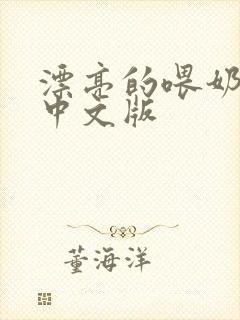 漂亮的喂奶
中文版
董海洋